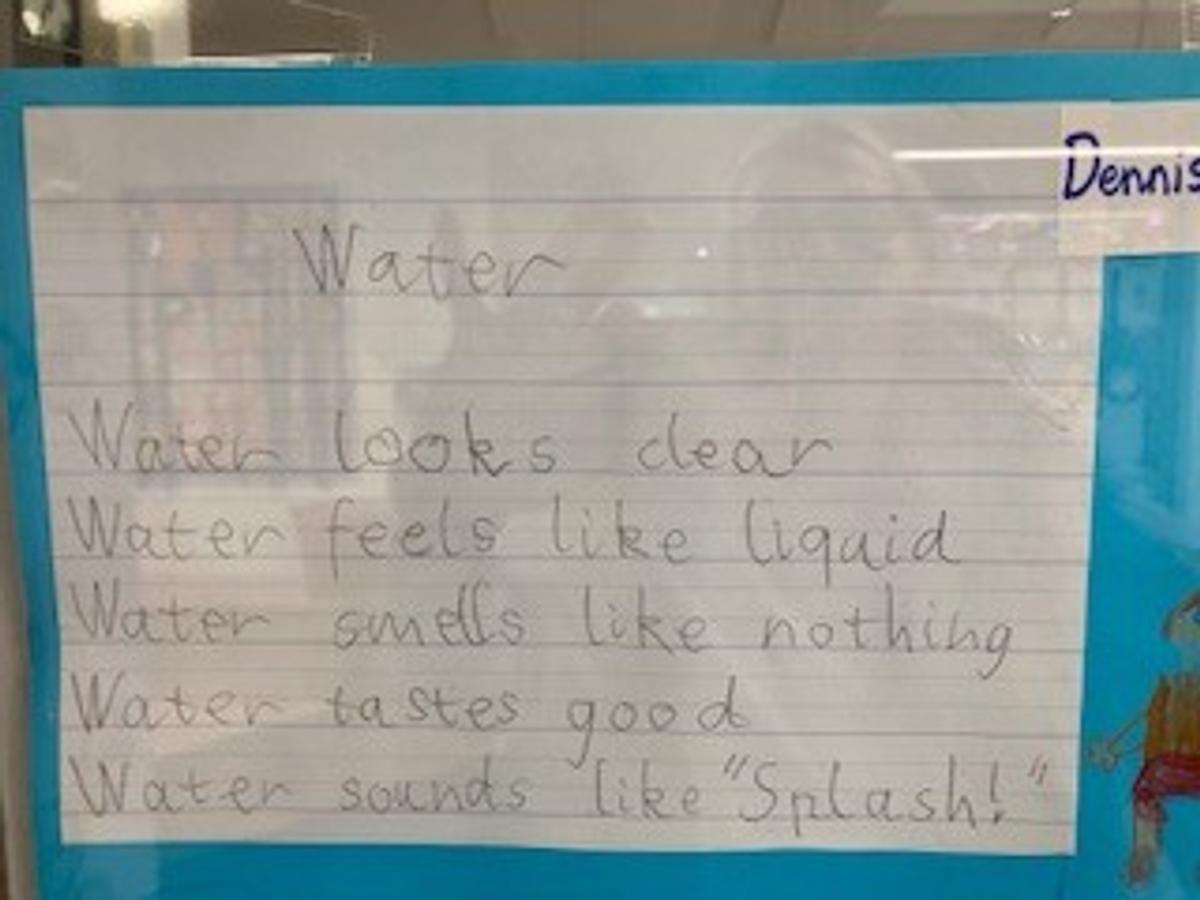 Dennis
Water
Water looks clear
Water feels like liquid
Water smells like nothing
Water tastes good
Water sounds like "Splash!"